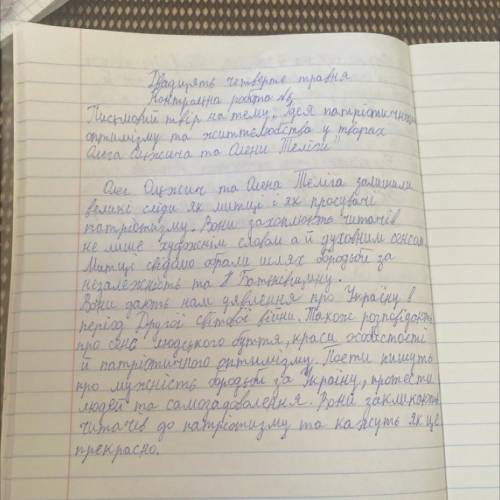 Двадцять четверте травня
Контрольна робота №5
Письмовий твір на тему „Ідея патріотичного
оптимізму та життелюбства у творах
Олега Ольжича та Олени Теліги"
Олег Ольжич та Олена Теліга залишили
великі сліди як митці і як просувачі
патріотизму. Вони захоплюють читачів
не лише художнім словом а й духовним сенсом.
Митці свідомо обрали шлях боротьби за
незалежність та Батьківщину.
Вони дають нам уявлення про Україну в
період Другої світової війни. Також розповідають
про сенс людського буття, краси особистості
й патріотичного оптимізму. Поети пишуть
про мужність боротьби за Україну, протести
людей та самозадоволення. Вони закликають
читачів до патріотизму та кажуть як це
прекрасно.